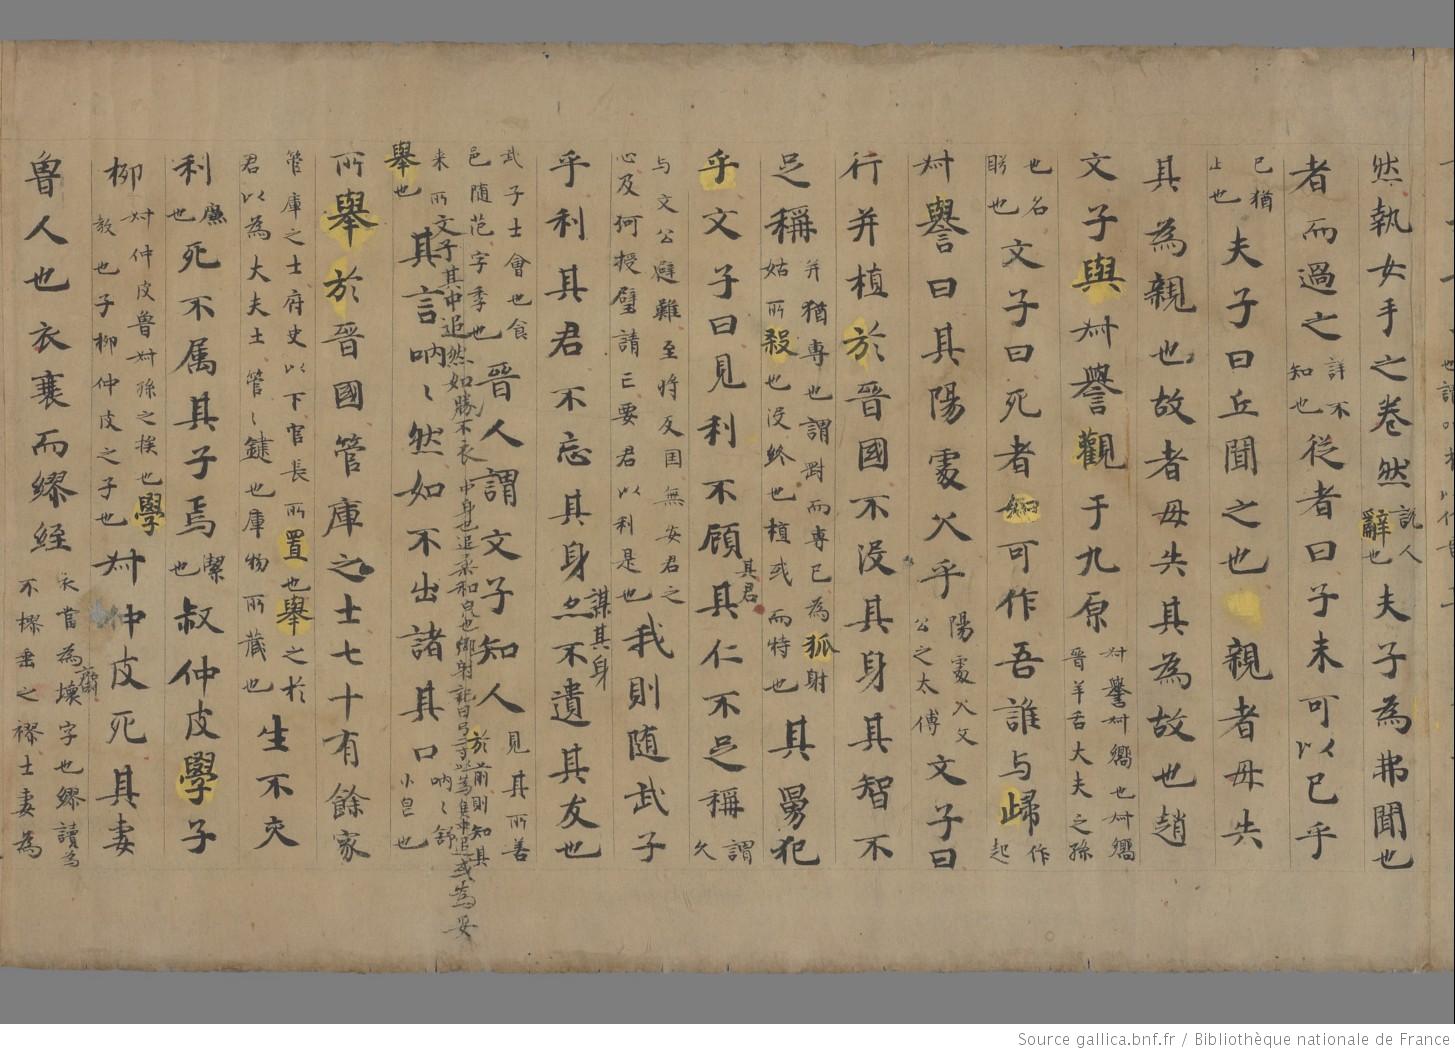 然執女手之卷然説人辭也夫子為弗聞也
者而過之詳不知也從者曰子未可以已乎
已猶止也夫子曰丘聞之也親者毋失
其為親也故者毋失其為故也趙
文子與叔譽觀于九原叔譽叔嚮也叔嚮晉羊舌大夫之孫
也名肸也文子曰死者如可作吾誰与歸作起
叔譽曰其陽處父乎陽處父父公之太傅文子曰
行并植於晉國不没其身其智不
足稱并猶專也謂剛而專已為狐射姑所殺也没終也植或而特也其舅犯
乎文子曰見利不顧其君其仁不足稱謂久
与文公避難至將反国無安君之心及何授璧請亡要君以利是也我則随武子
乎利其君不忘其身謀其身不遺其友也
武子士會也食邑随范字季也晉人謂文子知人見其所善於前則知其
来所舉也文子其中追然如勝不衣中身也追柔和皃也鄉射記曰弓二寸以為侯中追或為妥
其言吶〻然如不出諸其口吶〻舒小皃也
所舉於晉國管庫之士七十有餘家
管庫之士府史以下官長所置也舉之於君以為大夫士管〻鍵也庫物所藏也生不交
利廉也死不属其子焉潔也叔仲皮學子
柳叔仲皮魯叔孫之族也學教也子柳仲皮之子也叔仲皮死其妻
魯人也衣衰而繆絰衣當為齊壞字也繆讀為不樛垂之樛士妻為
Source gallica.bnf.fr / Bibliothèque nationale de France